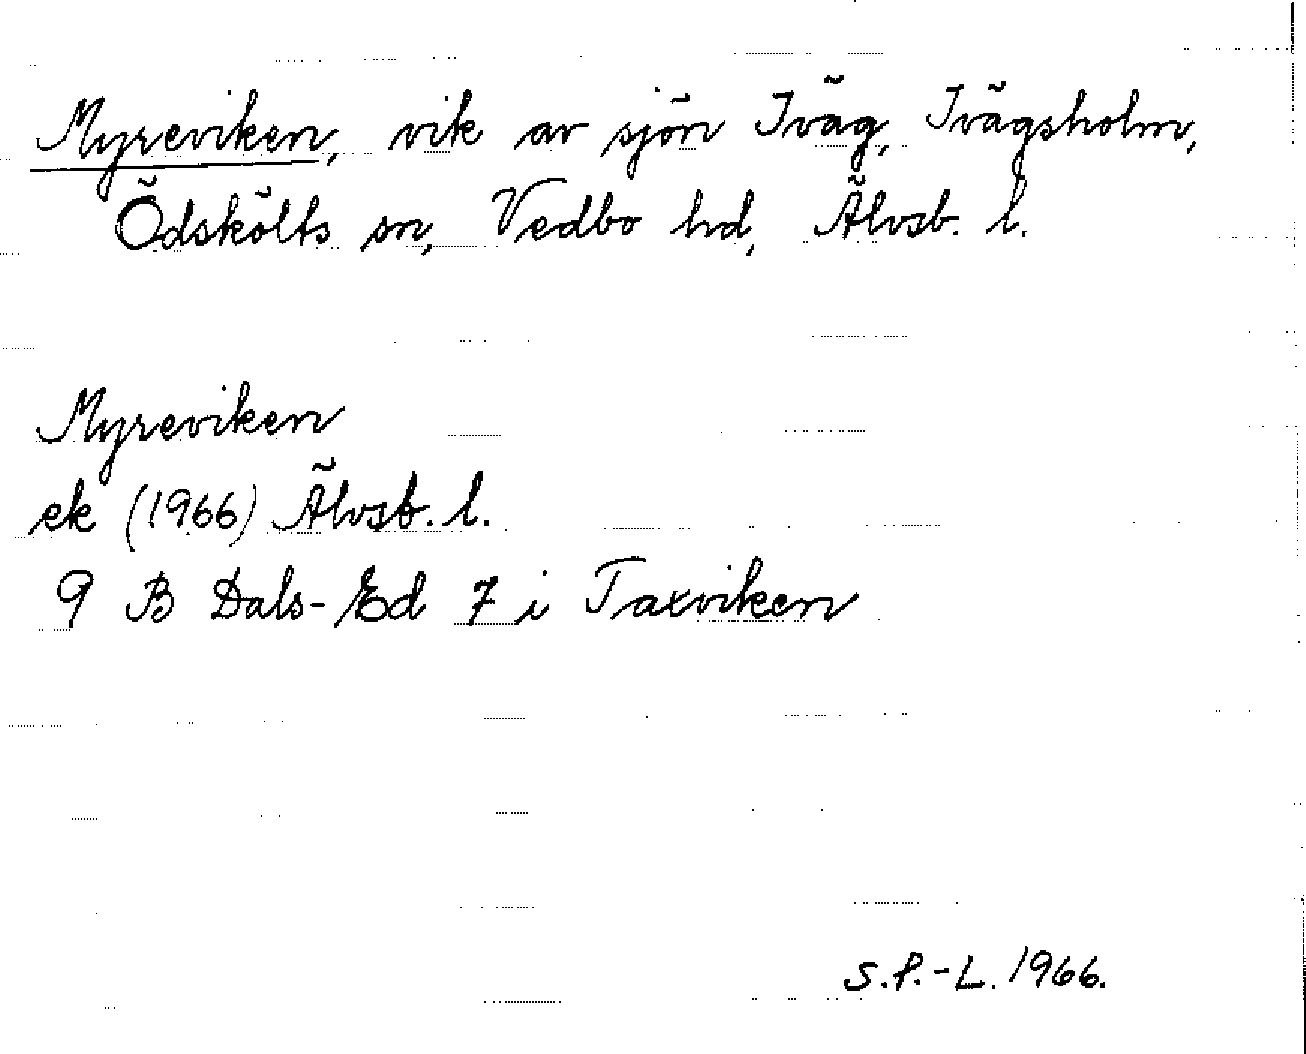 Myreviken, vik av sjön Iväg, Ivägsholm,
Ödskölts sn, Vedbo hd, Älvsb. l.
Myreviken
ek (1966) Älvsb. l.
9 B Dals-Ed 7 i Taxviken
S.P.-L. 1966.